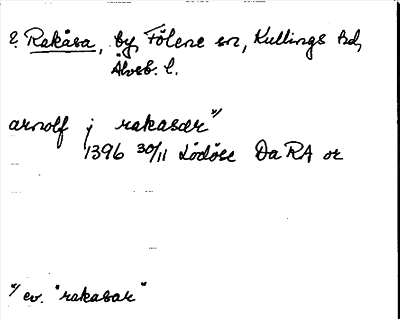 2. Rakåsa, by, Fölene sn, Kullings hd,
Älvsb. l.
arnolf j rakasær x/
1396 30/11 Lödöse DaRA or
x/ ev. "rakasar"